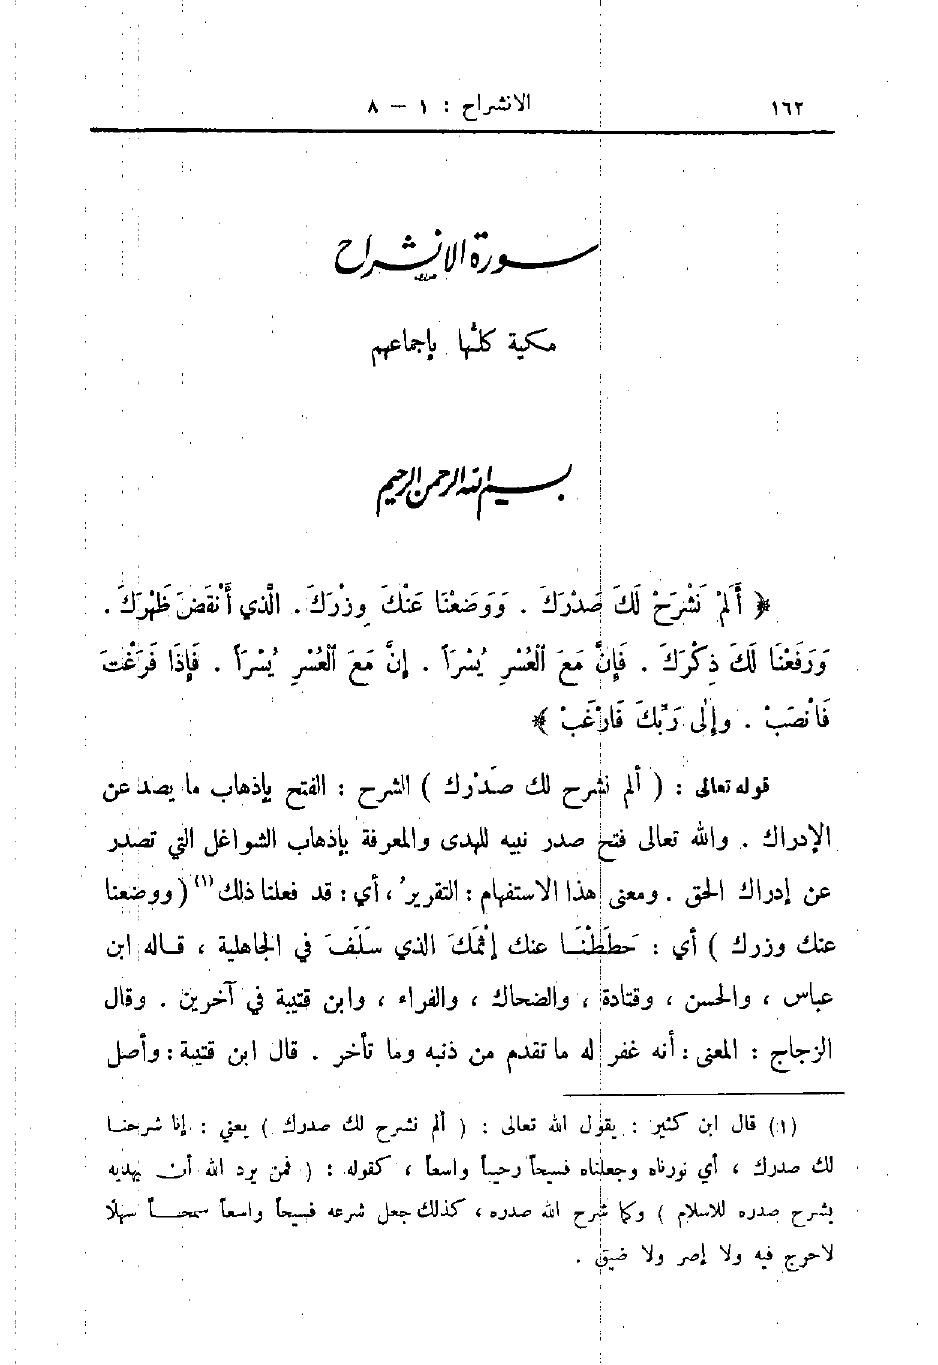 ١٦٢
الانشراح : ١ — ٨
سورة الانشراح
مكية كلُّها بإجماعهم
بسم الله الرحمن الرحيم
﴿ أَلَمْ نَشْرَحْ لَكَ صَدْرَكَ . وَوَضَعْنَا عَنْكَ وِزْرَكَ . الَّذي أَنْقَضَ ظَهْرَكَ .
وَرَفَعْنَا لَكَ ذِكْرَكَ . فَإِنَّ مَعَ ٱلْعُسْرِ يُسْرَاً . إِنَّ مَعَ ٱلْعُسْرِ يُسْرَاً . فَإِذَا فَرَغْتَ
فَانْصَبْ . وإِلَى رَبِّكَ فَارْغَبْ ﴾
قوله تعالى : ( ألم نشرح لك صَدْرك ) الشرح : الفتح بإذهاب ما يصد عن
الإدراك . والله تعالى فتح صدر نبيه للهدى والمعرفة بإذهاب الشواغل التي تصدر
عن إدراك الحق . ومعنى هذا الاستفهام : التقرير ، أي : قد فعلنا ذلك (١) ( ووضعنا
عنك وزرك ) أي : حَططْنَا عنك إثْمَكَ الذي سَلَفَ في الجاهلية ، قاله ابن
عباس ، والحسن ، وقتادة ، والضحاك ، والفراء ، وابن قتيبة في آخرين . وقال
الزجاج : المعنى : أنه غفر له ما تقدم من ذنبه وما تأخر . قال ابن قتيبة : وأصل
(١) قال ابن كثير : يقول الله تعالى : ( ألم نشرح لك صدرك ) يعني : إنا شرحنا
لك صدرك ، أي نورناه وجعلناه فسيحاً رحيباً واسعاً ، كقوله : ( فمن يرد الله أن يهديه
يشرح صدره للاسلام ) وكما شرح الله صدره ، كذلك جعل شرعه فسيحاً واسعاً سمحاً سهلاً
لا حرج فيه ولا إصر ولا ضيق .